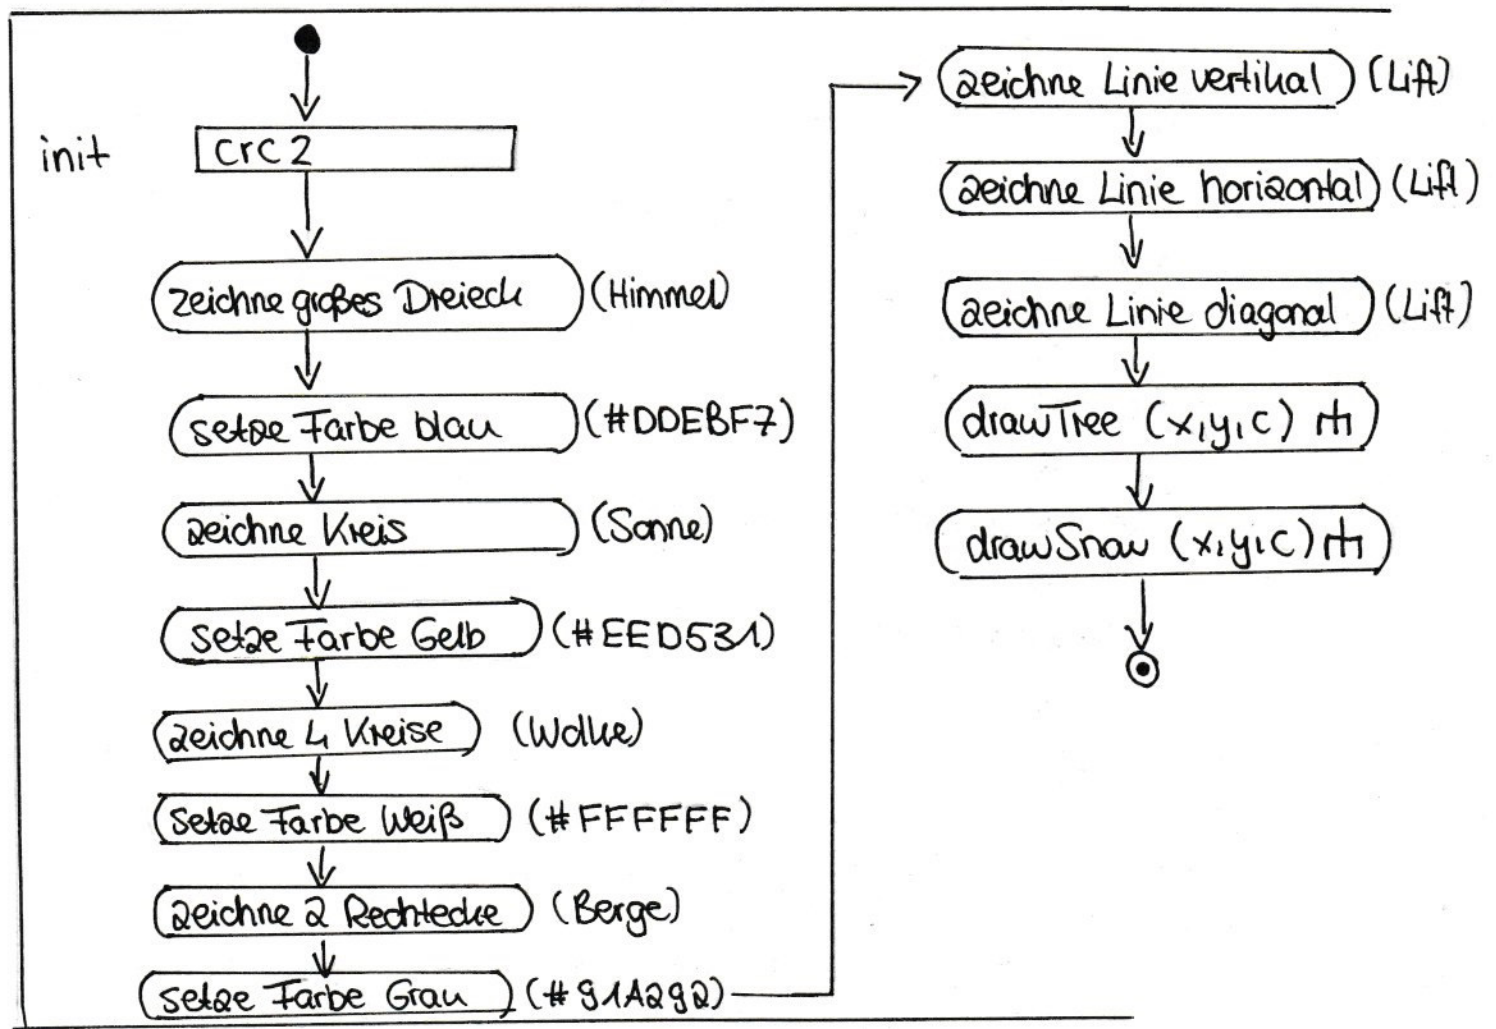 init
crc 2
zeichne großes Dreieck (Himmel)
setze Farbe blau (#DDEBF7)
zeichne Kreis (Sonne)
setze Farbe Gelb (#EED531)
zeichne 4 Kreise (Wolke)
setze Farbe Weiß (#FFFFFF)
zeichne 2 Rechtecke (Berge)
setze Farbe Grau (#91A292)
zeichne Linie vertikal (Lift)
zeichne Linie horizontal (Lift)
zeichne Linie diagonal (Lift)
drawTree (x,y,c)
drawSnow (x,y,c)